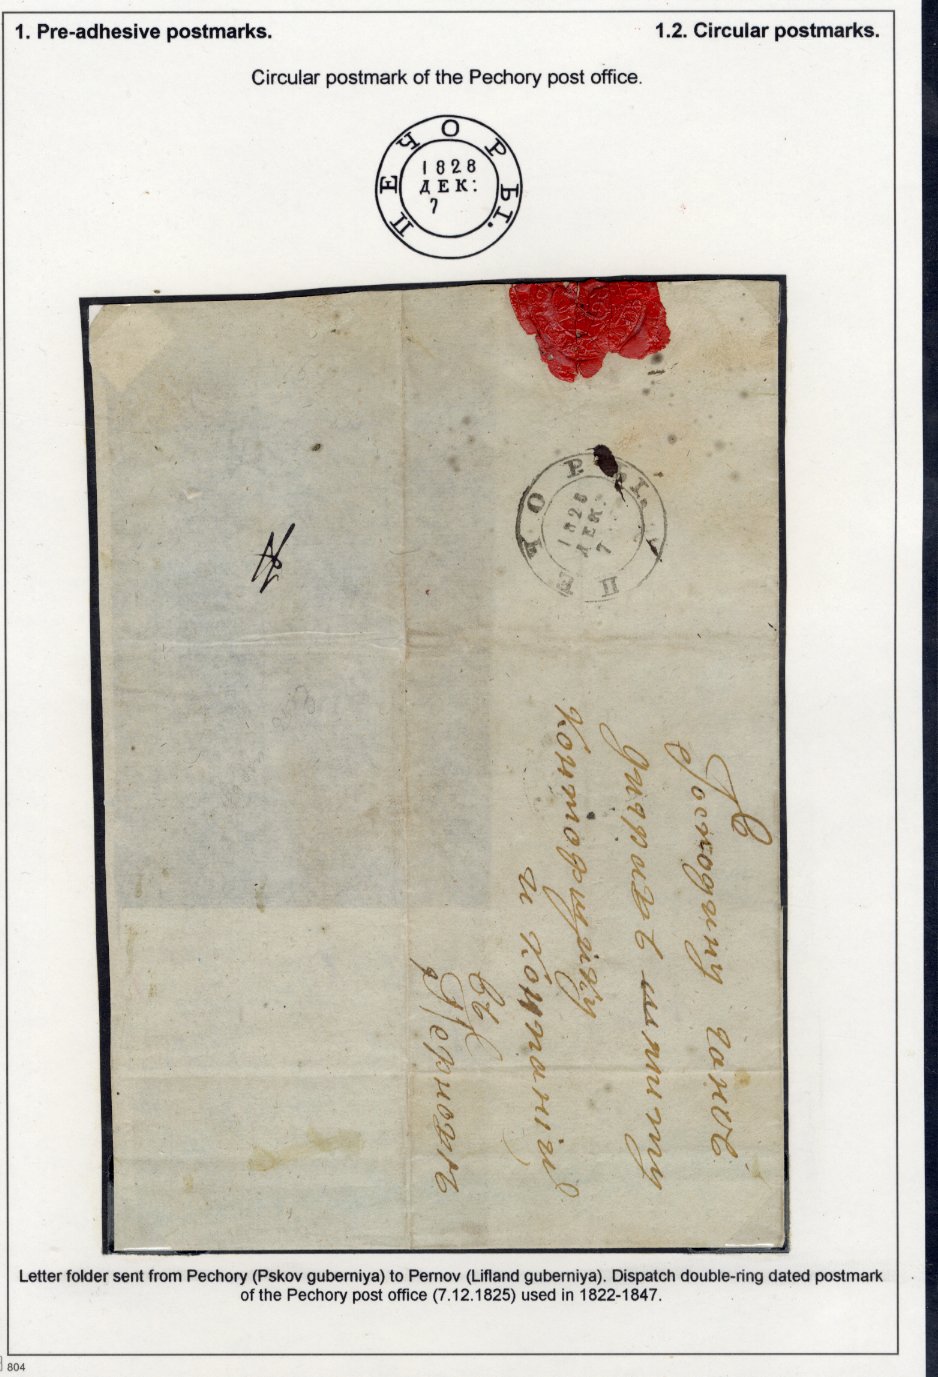 1. Pre-adhesive postmarks.
1.2. Circular postmarks.
Circular postmark of the Pechory post office.
ПЕЧОРЫ.
1828
ДЕК:
7
ПЕЧОРЫ.
1828
ДЕК:
7
Господину
и Компаніи
Въ
Letter folder sent from Pechory (Pskov guberniya) to Pernov (Lifland guberniya). Dispatch double-ring dated postmark
of the Pechory post office (7.12.1825) used in 1822-1847.
804